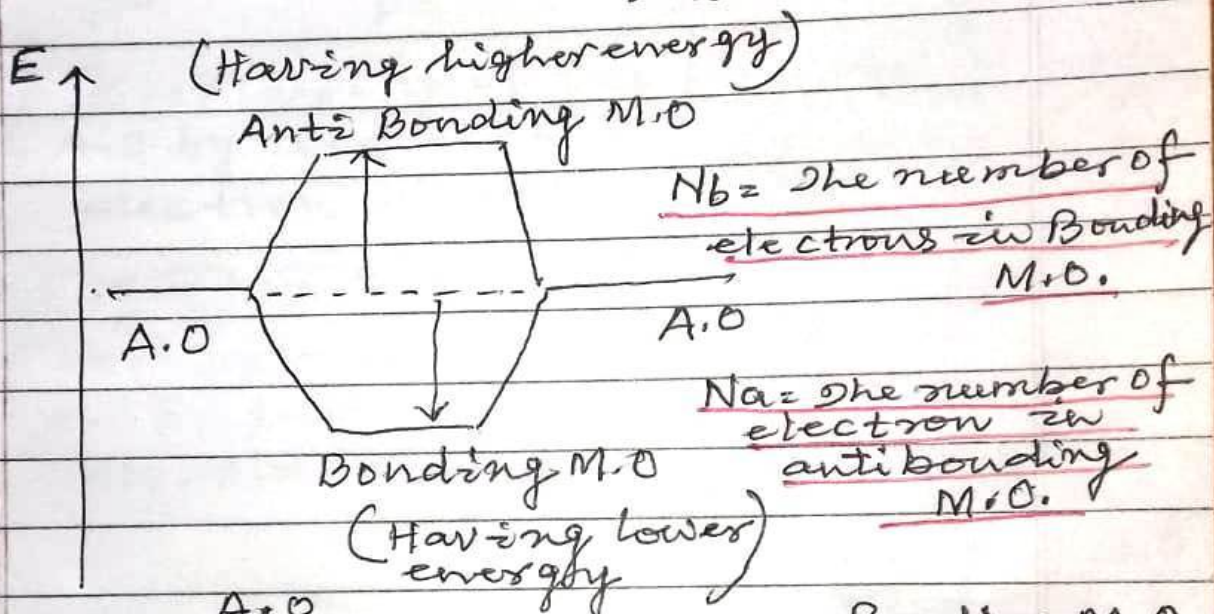 E
(Having higher energy)
Anti Bonding M.O
Nb = The number of
electrons in Bonding
M.O.
A.O
A.O
Na = The number of
electron in
antibonding
M.O.
Bonding M.O
(Having lower
energy)
A.O